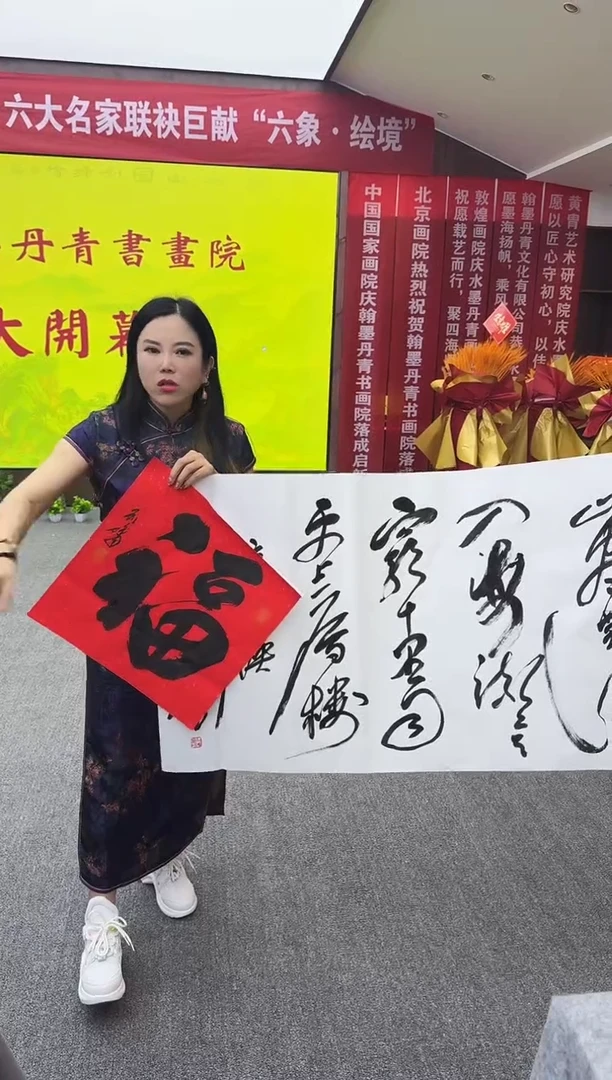 六大名家联袂巨献“六象·绘境”
丹青書畫院
大開幕
黄胄艺术研究院庆水
愿以匠心守初心，以佳
翰墨丹青文化有限公司恭
愿墨海扬帆，乘风
敦煌画院庆水墨丹青画
祝愿载艺而行，聚四海
北京画院热烈祝贺翰墨丹青书画院落成
中国国家画院庆翰墨丹青书画院落成启
入海流欲
窮千里目
更上一層樓
福